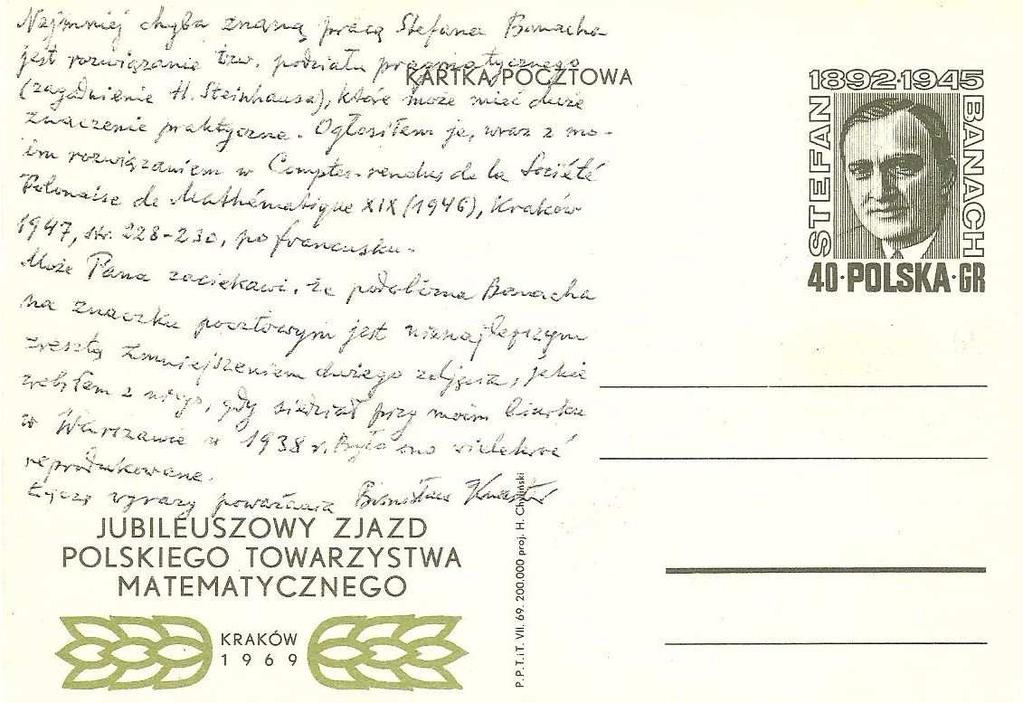 Najmniej chyba znaną pracą Stefana Banacha
jest rozwiązanie tzw. podziału pragmatycznego
(zagadnienie H. Steinhausa), które może mieć duże
znaczenie praktyczne. Ogłosiłem je, wraz z mo-
im rozwiązaniem w Comptes-rendus de la Société
Polonaise de Mathématique XIX (1946), Kraków
1947, str. 228-230, po francusku.
Może Pana zaciekawi, że podobizna Banacha
na znaczku pocztowym jest nienajlepszym
zresztą zmniejszeniem dużego zdjęcia, jakie
zrobiłem z niego, gdy siedział przy moim biurku
w Warszawie w 1938 r. Było ono wielekroć
reprodukowane.
Łączę wyrazy poważania Bronisław Knaster
KARTKA POCZTOWA
1892·1945
STEFAN
BANACH
40·POLSKA·GR
JUBILEUSZOWY ZJAZD
POLSKIEGO TOWARZYSTWA
MATEMATYCZNEGO
KRAKÓW
1969
P.P.T.iT. VII. 69. 200.000 proj. H. Chyliński